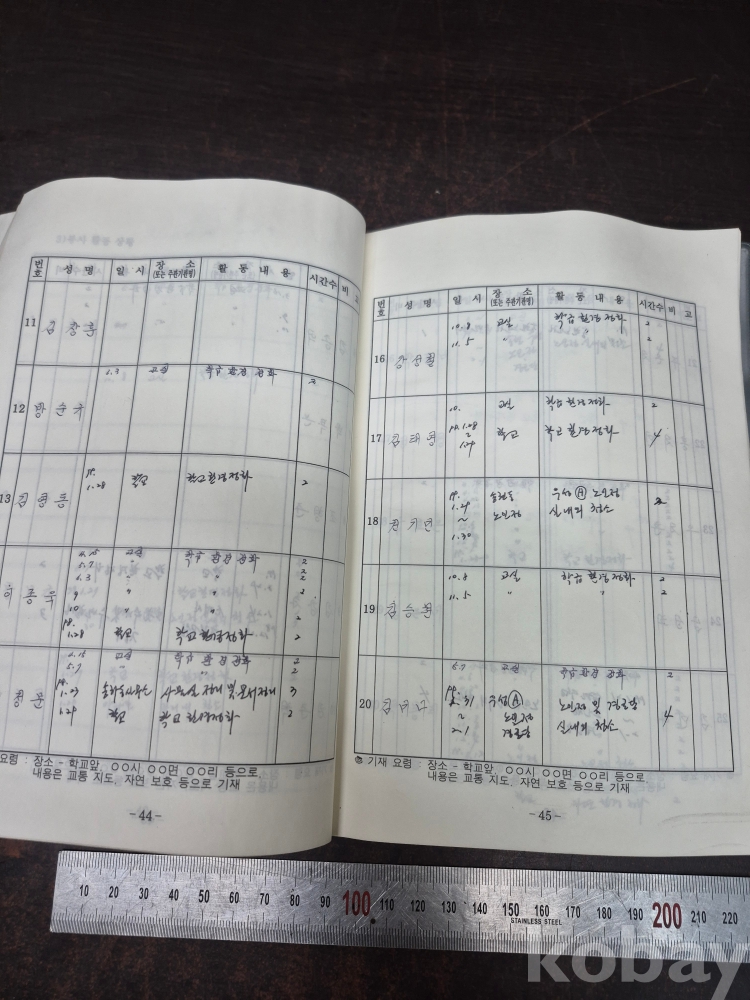 번호 성 명 일 시 장 소 (또는 주관기관명) 활 동 내 용 시간수 비 고
11 김 창 훈
12 1.3 교실 학급 환경 정화 2
13 김 영 동 1.28 학교 학교환경정화 2
4.15 교실 학급 환경 정화 2
5.7 〃 〃 2
6.3 〃 〃 2
9 〃 〃 2
10
1.28 학교 학교 환경정화 2
4.15 교실 학급 환경 정화 2
5.7 〃 〃 2
1.27 사무실 정리 및 문서정리 3
1.29 학교 학교 환경정화 2
요령 : 장소 - 학교앞, ○○시 ○○면 ○○리 등으로,
내용은 교통 지도, 자연 보호 등으로 기재
- 44 -
번호 성 명 일 시 장 소 (또는 주관기관명) 활 동 내 용 시간수 비 고
16 강 성 철 10.8 교실 학급 환경 정화 2
11.5 〃 〃 2
17 김 태 영 10. 교실 학급 환경정화 2
1.28 학교 학교 환경 정화 4
~
1.29
18 1.29 노인정 우성 Ⓐ 노인정
~ 실내외 청소
1.30
19 김 승 원 10.8 교실 학급 환경정화 2
11.5 〃 〃 2
20 5.7 교실 학급 환경 정화 2
1.31 우성Ⓐ 노인정 및 경로당 4
~ 노인정 실내외 청소
2.1 경로당
기재 요령 : 장소 - 학교앞, ○○시 ○○면 ○○리 등으로,
내용은 교통 지도, 자연 보호 등으로 기재
- 45 -
10 20 30 40 50 60 70 80 90 100 110 120 130 140 150 160 170 180 190 200 210 220
STAINLESS STEEL
kobay